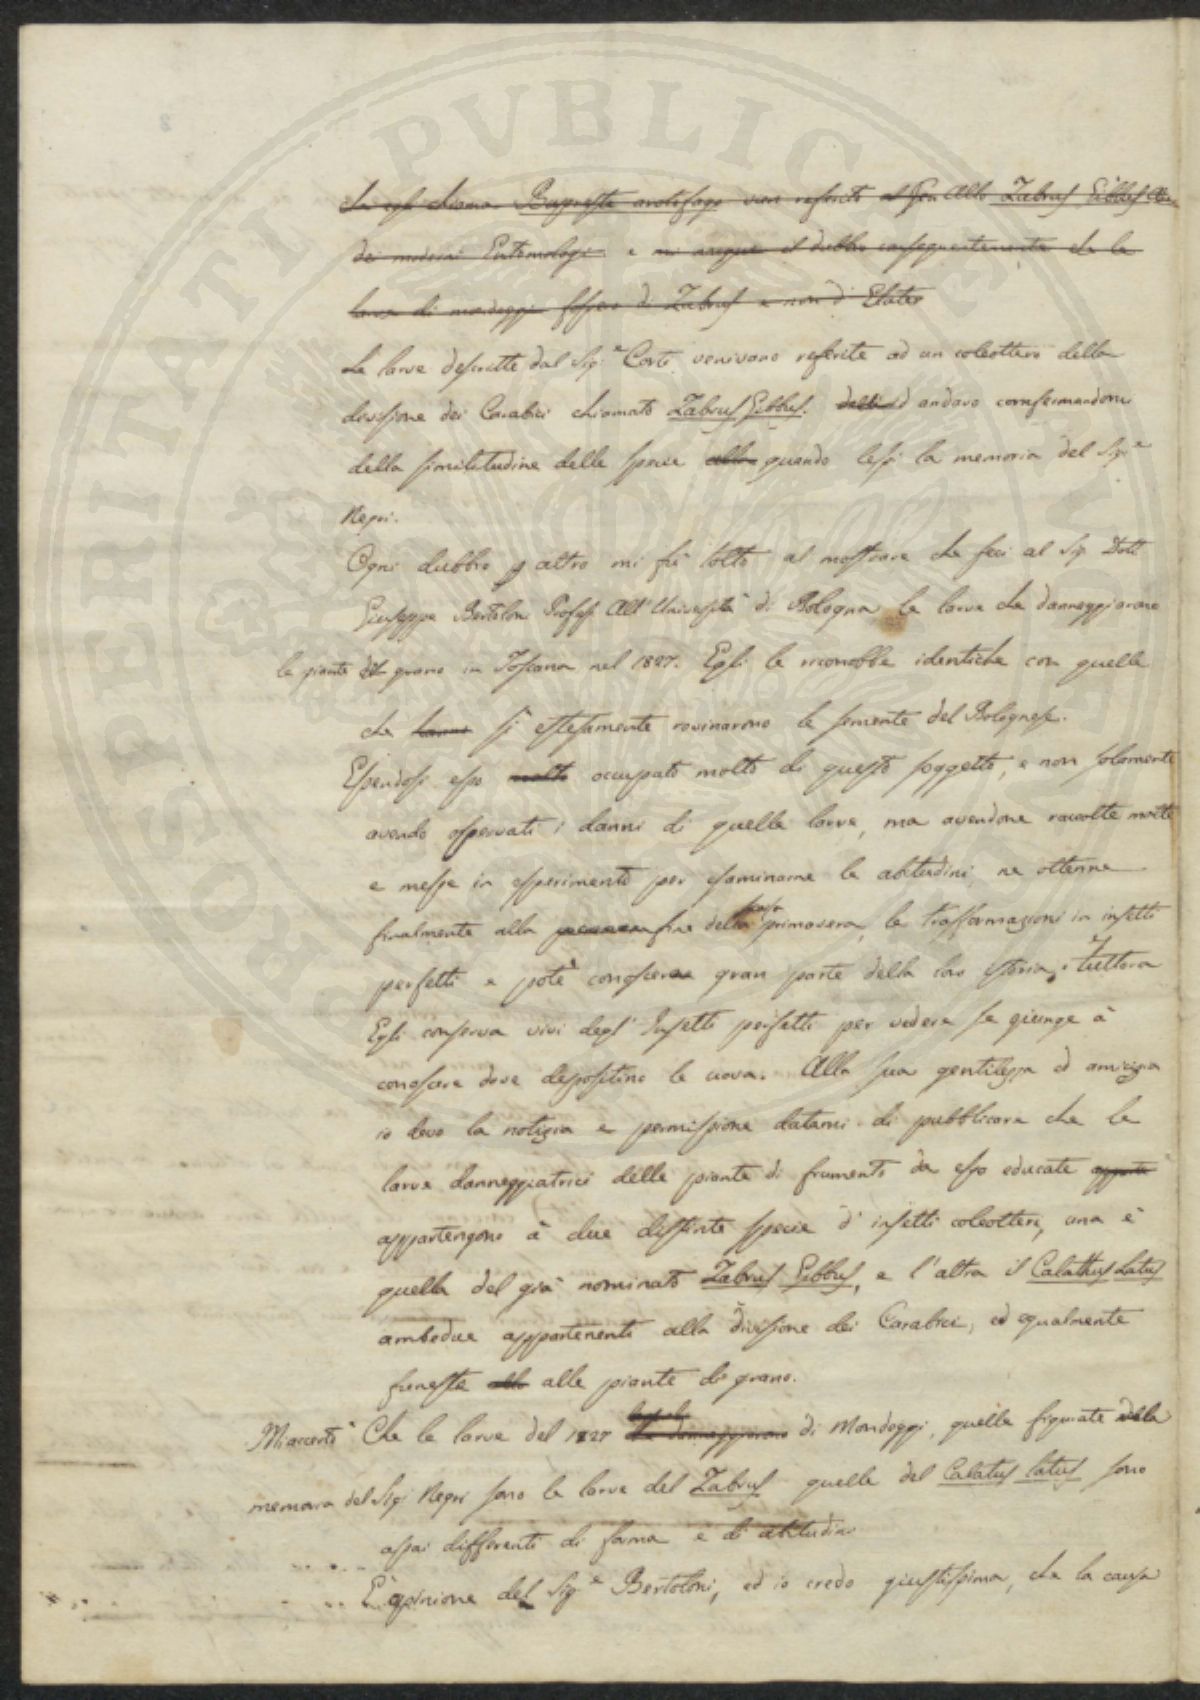 che egli chiama Bupreste avotofago vien referito al Gen Allo Zabrus Gibbus
dei moderni Entomologi e mi nacque il dubbio conseguentemente che le
larve di mondeggi fossero di Zabrus e non d'Elater
Le larve descritte dal Sigr Corti venivano referite ad un coleottero della
divisione dei Carabici chiamato Zabrus Gibbus. ed andavo confermandomi
della similitudine delle specie allo quando lessi la memoria del Sigre
Negri.
Ogni dubbio altro mi fù tolto al mostrare che feci al Sig. Dott
Giuseppe Bertoloni Profess. All'Università di Bologna le larve che danneggiarono
le piante del grano in Toscana nel 1827. Egli le riconobbe identiche con quelle
che hanno sì estesamente rovinarono le semente del Bolognese.
Essendosi esso molto occupato molto di questo soggetto, e non solamente
avendo osservati i danni di quelle larve, ma avendone raccolte molte
e messe in esperimento per esaminarne le abitudini ne ottenne
finalmente alla fine della primavera, le trasformazioni in insetti
perfetti e potè conoscere gran parte della loro storia. Tuttora
Egli conserva vivi degl'Insetti perfetti per vedere se giunge à
conoscere dove depositino le uova. Alla sua gentilezza ed amicizia
io devo la notizia e permissione datami di pubblicare che le
larve danneggiatrici delle piante di frumento da esso educate
appartengono à due distinte specie d'insetti coleotteri, una è
quella del già nominato Zabrus Gibbus, e l'altra il Calathus Latus
ambedue appartenenti alla divisione dei Carabici, ed egualmente
funeste allo alle piante di grano.
Mi accertò Che le larve del 1827 di Mondeggi, quelle figurate nella
memoria del Sigr Negri sono le larve del Zabrus quelle del Calatus latus sono
assai differenti di forma e di abitudini
E' opinione del Sigre Bertoloni, ed io credo giustissima, che la causa
PROSPERITATI PUBLICAE